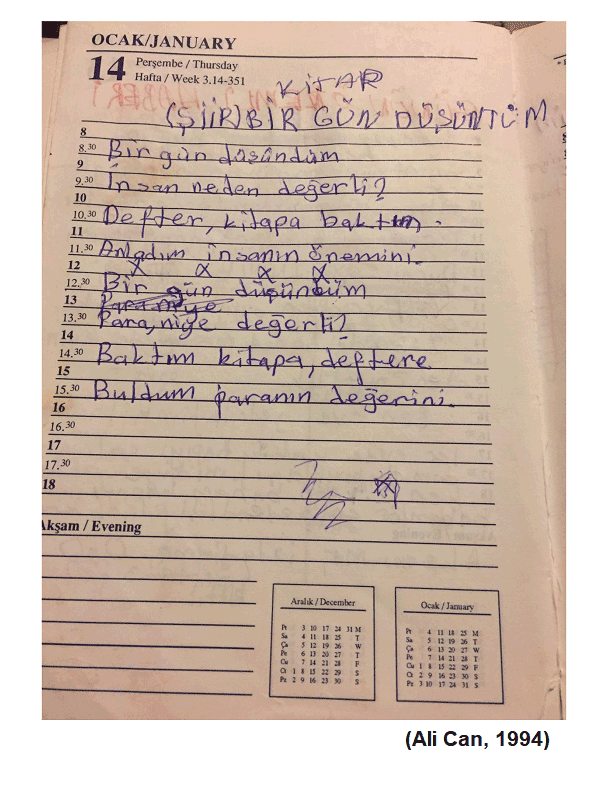 OCAK/JANUARY
14 Perşembe / Thursday
Hafta / Week 3.14-351
KİTAP
(ŞİİR) BİR GÜN DÜŞÜNTÜM
8
8.30 Bir gün düşündüm
9
9.30 İnsan neden değerli?
10
10.30 Defter, kitapa baktım.
11
11.30 Anladım insanın önemini.
12
12.30 Bir gün düşündüm
13 Para niye
13.30 Para, niye değerli?
14
14.30 Baktım kitapa, deftere
15
15.30 Buldum paranın değerini.
16
16.30
17
17.30
18
Akşam / Evening
Aralık / December
Pt 3 10 17 24 31 M
Sa 4 11 18 25 T
Ça 5 12 19 26 W
Pe 6 13 20 27 T
Cu 7 14 21 28 F
Ct 1 8 15 22 29 S
Pz 2 9 16 23 30 S
Ocak / January
Pt 4 11 18 25 M
Sa 5 12 19 26 T
Ça 6 13 20 27 W
Pe 7 14 21 28 T
Cu 1 8 15 22 29 F
Ct 2 9 16 23 30 S
Pz 3 10 17 24 31 S
(Ali Can, 1994)